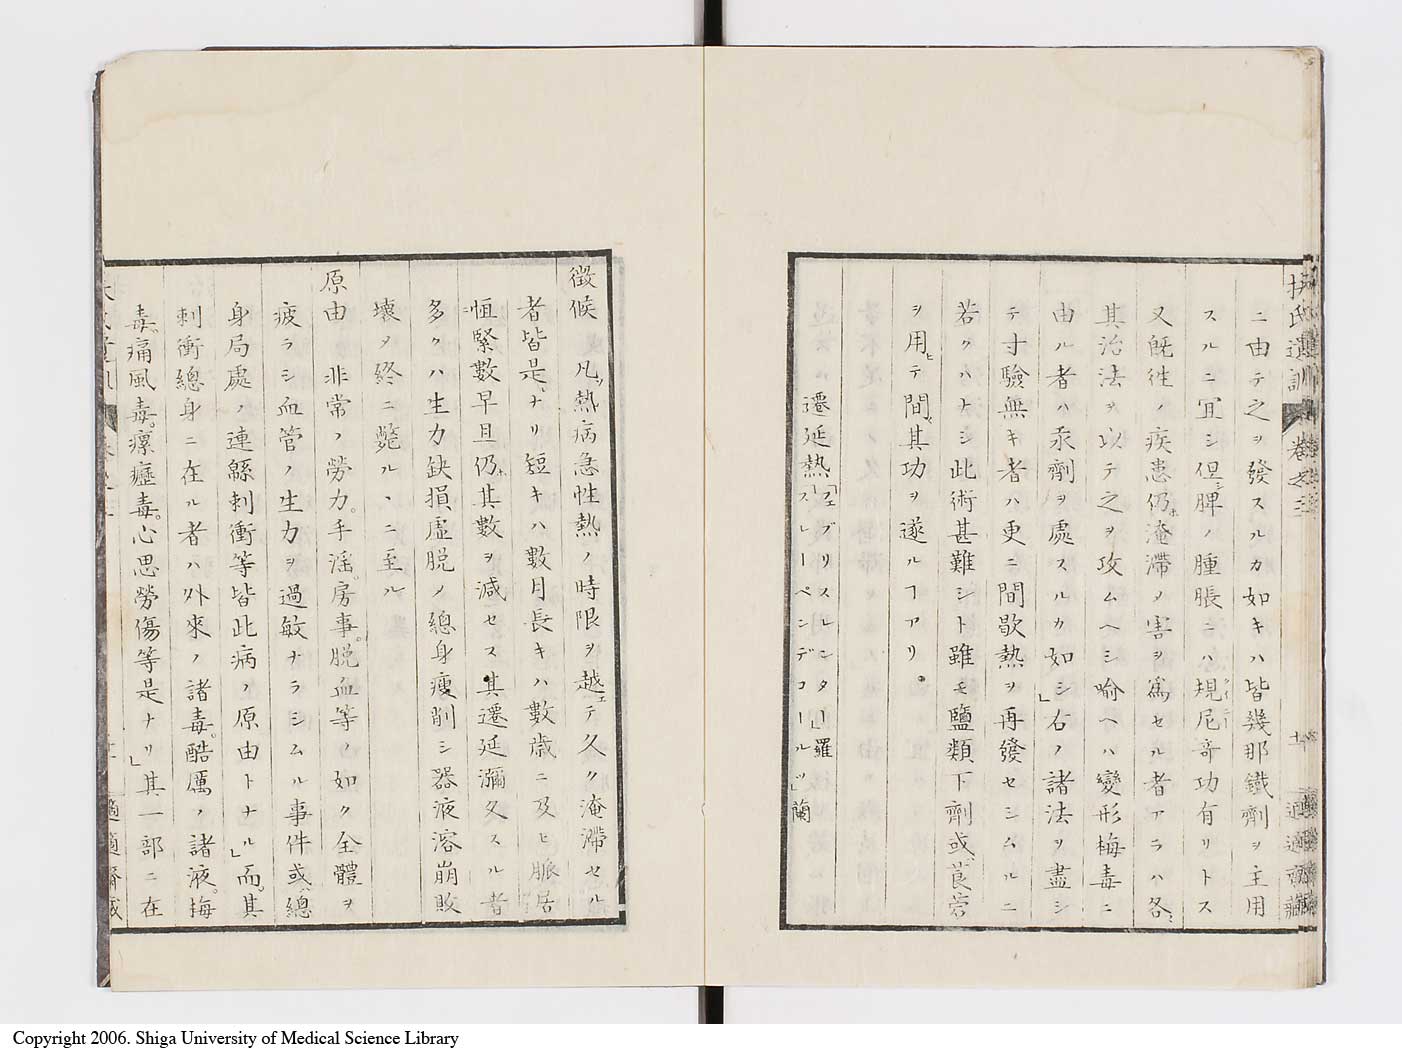 扶氏遺訓 卷之三
ニ由テ之ヲ發スルカ如キハ皆幾那鐵劑ヲ主用
スルニ冝シ但シ脾ノ腫脹ニハ規尼哥功有リトス
又既徃ノ疾患仍ホ淹滯ノ害ヲ爲セル者アラハ各〻
其治法ヲ以テ之ヲ攻ムヘシ喻ヘハ變形梅毒ニ
由ル者ハ汞劑ヲ處スルカ如シ」右ノ諸法ヲ盡シ
テ寸驗無キ者ハ更ニ間歇熱ヲ再發セシムルニ
若クハナシ此術甚難シト雖モ鹽類下劑或莨菪
ヲ用ヒテ間其功ヲ遂ルヿアリ
遷延熱「フェブリスルンタ―」羅
「スレーペンデコールツ」蘭
徴候 凡ソ熱病急性熱ノ時限ヲ越エテ久ク淹滯セル
者皆是ナリ短キハ數月長キハ數歳ニ及ヒ脈居
恒ニ緊數早旦仍ホ其數ヲ減セス其遷延瀰久スル者
多クハ生力缺損虛脱ノ總身瘦削シ器液溶崩敗
壞ヲ終ニ斃ルヽニ至ル
原由 非常ノ勞力。手淫。房事。脱血等ノ如ク全體ヲ
疲ラシ血管ノ生力ヲ過敏ナラシムル事件或ハ總
身局處ノ連緜刺衝等皆此病ノ原由トナル」而其
刺衝總身ニ在ル者ハ外來ノ諸毒。酷厲ノ諸液。梅
毒。痛風毒。瘰癧毒。心思勞傷等是ナリ」其一部ニ在